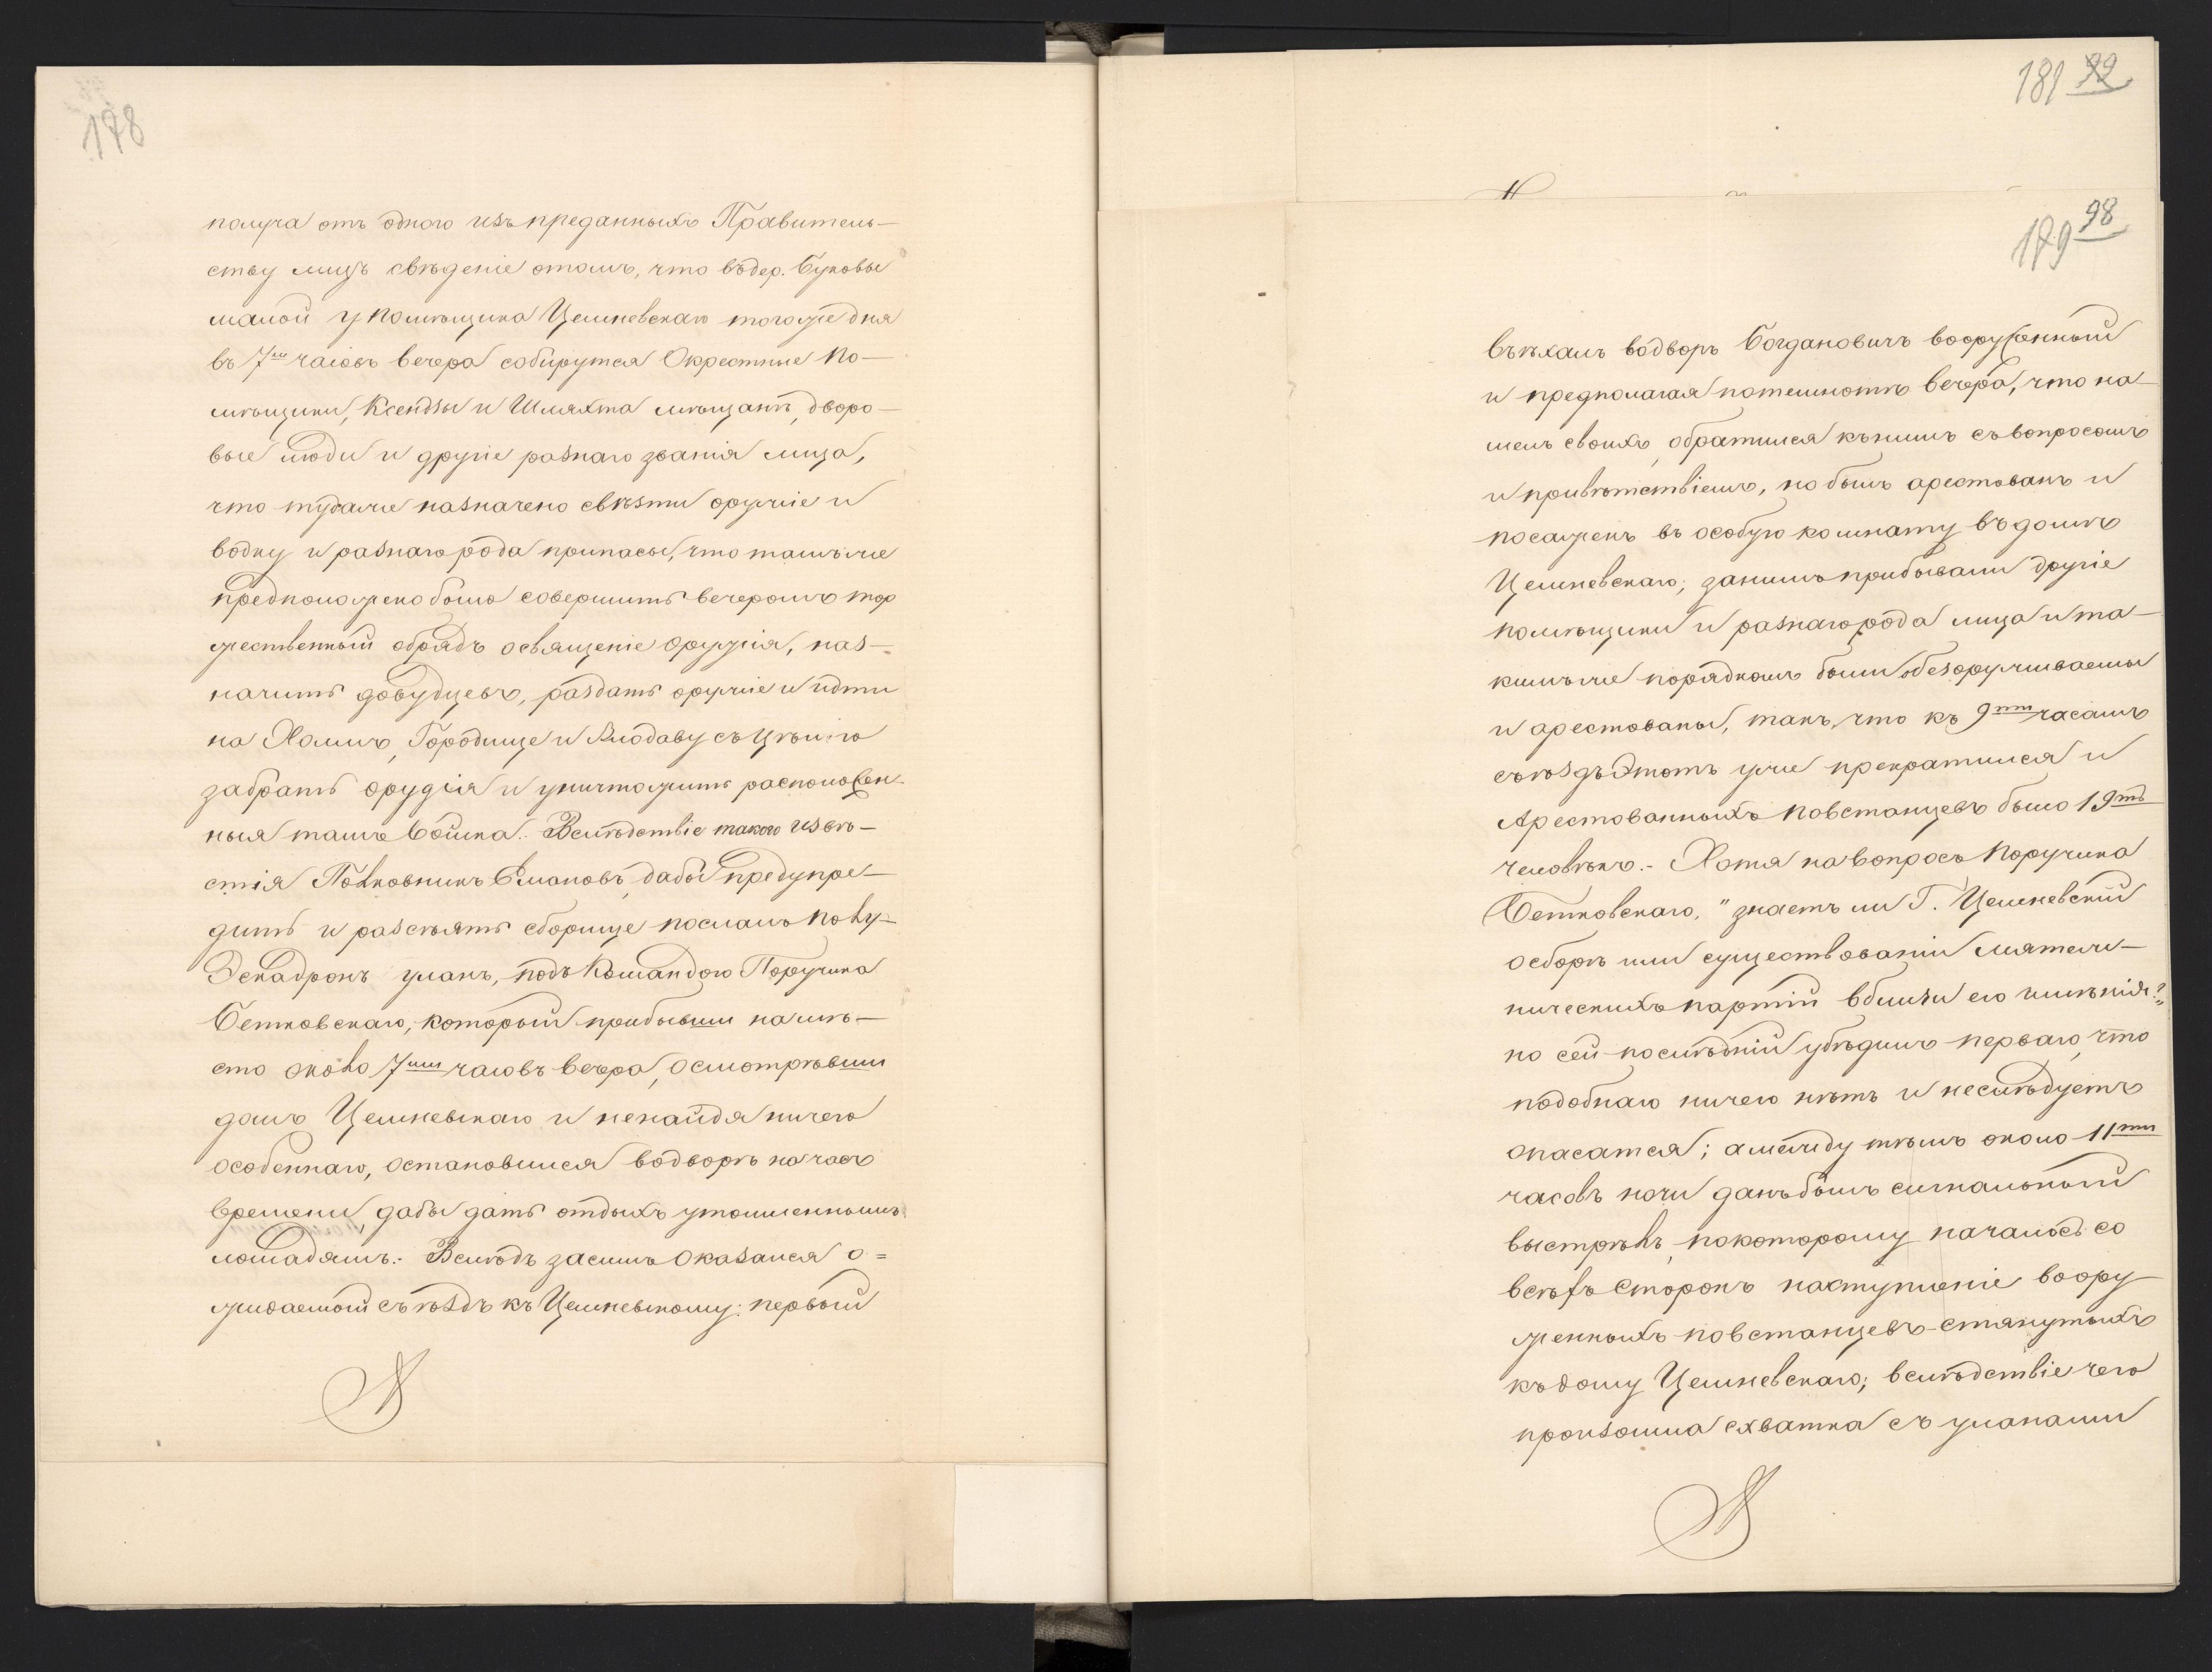 178
получа отъ одного изъ преданныхъ Правитель-
ству лицъ свѣденіе отомъ, что въдер. Буковы
малой у помѣщика Цешневскаго тогоже дня
въ 7ми часовъ вечера собирутся Окрестные По-
мѣщики, Ксендзы и Шляхта мѣщанъ, дворо-
вые люди и другіе разнаго званія лица,
что тудаже назначено свѣзти оружіе и
водку и разнаго рода припасы, что тамъже
предположено было совершить вечеромъ тор
жественный обрядъ освященіе оружія, наз-
начить довудцевъ, раздать оружіе и идти
на Холмъ, Городище и Влодаву съ цѣлію
забрать орудія и уничтожить расположен-
ныя тамъ Войска. Вслѣдствіе такого извѣ-
стія Полковникъ Эмановъ, дабы предупре-
дить и разсѣять сборище послалъ полу-
Эскадронъ уланъ, подъ Командою Поручика
Бетковскаго, который прибывши на мѣ-
сто около 7ми часовъ вечера, осмотрѣвши
домъ Цешневскаго и ненайдя ничего
особеннаго, остановился водворѣ на часъ
времени, дабы дать отдыхъ утомленнымъ
лошадямъ.- Вслѣдъ засимъ оказался о=
жидаемый съѣздъ къ Цешневскому: первый
181 99
179 98
въѣхалъ водворъ Богдановичъ вооруженный
и предполагая потемнотѣ вечера, что на-
шелъ своихъ, обратился кънимъ съвопросомъ
и привѣтствіемъ, но былъ арестованъ и
посаженъ въ особую комнату въ домѣ
Цешневскаго; занимъ прибывали другіе
помѣщики и разнаго рода лица и та-
кимъже порядкомъ были обезоруживаемы
и арестованы, такъ, что къ 9ти часамъ
съѣздъ Этотъ уже прекратился и
Арестованныхъ повстанцевъ было 19ть
человѣкъ.- Хотя навопросъ Поручика
Бетковскаго, "знаетъ ли Г. Цешневскій
осборѣ или существованіи мятеж-
ническихъ партій вблизи его имѣнія?"
но сей послѣдній убѣдилъ перваго, что
подобнаго ничего нѣтъ и неслѣдуетъ
опасатся; а между тѣмъ около 11ти
часовъ ночи данъ былъ сигнальный
выстрѣлъ, покоторому началось со
всѣхъ сторонъ наступленіе воору-
женныхъ повстанцевъ стянутыхъ
къдому Цешневскаго; вслѣдствіе чего
произошла схватка съ уланами